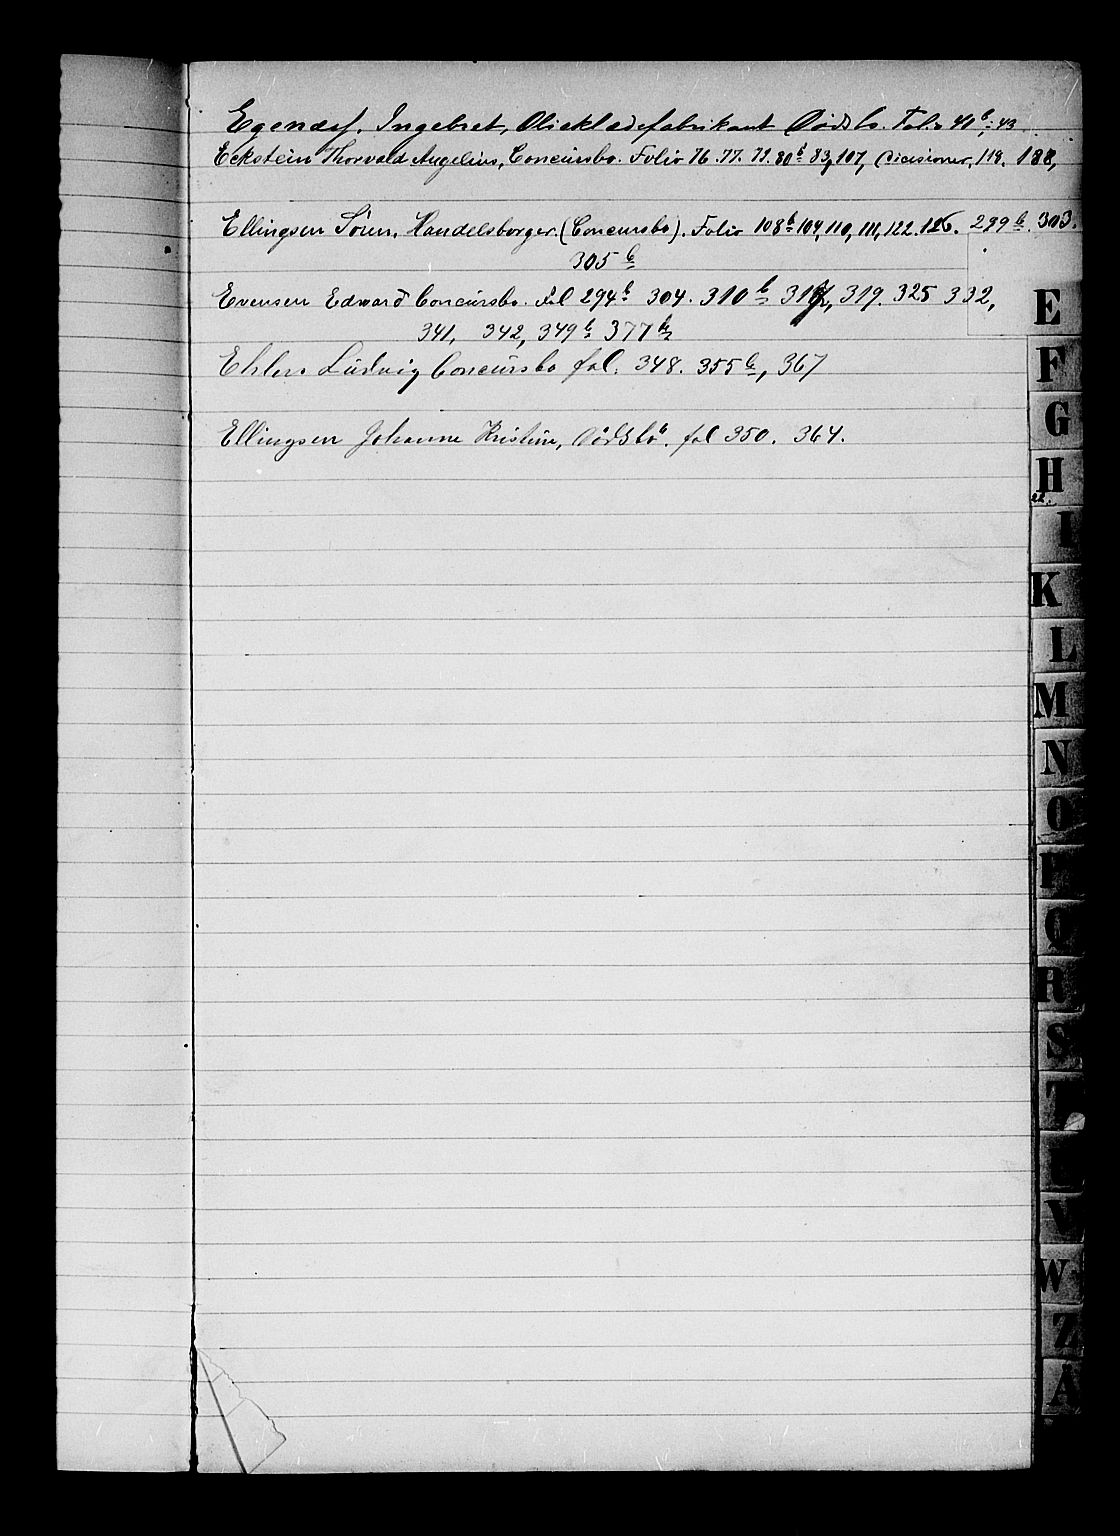 Egenæs, Ingebret, Oliekledefabrikant Dødsbo. Folio 41 b, 43
Eckstein Thorvald Angelius, Concursbo. Folio 76. 77. 79. 80 b 83, 107, Decisioner, 119. 188,
Ellingsen Søren, Handelsborger. (Concursbo). Folio 108 b 109, 110, 111, 122. 126. 299 b. 303.
305 b
Evensen Edward Concursbo. Fol 294 b 304. 310 b 317, 319. 325 332,
341, 342, 349 b 377 b
Ehlers Ludvig Concursbo fol. 348. 355 b, 367
Ellingsen Johanne Kristine, Dødsbo. fol 350. 364.
E
F
G
H
22.
I
K
L
M
N
O
P
Q
R
S
T
V
W
Z
Å